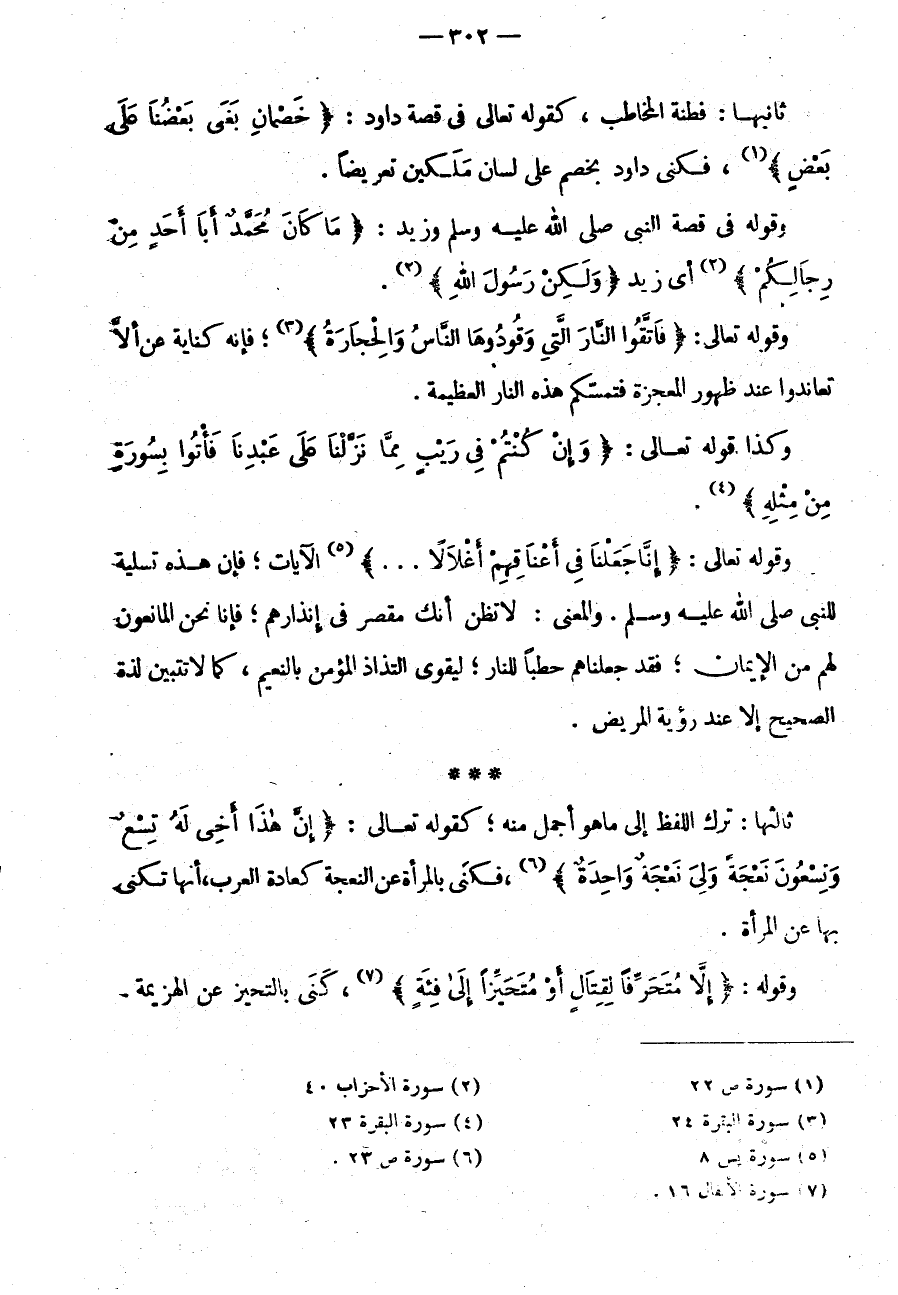 — ٣٠٢ —
ثانيهـا : فطنة المخاطب ، كقوله تعالى فى قصة داود : ﴿ خَصْمَانِ بَغَى بَعْضُنَا عَلَى
بَعْضٍ ﴾(١) ، فـكنى داود بخصم على لسان مَلَـكين تعريضاً .
وقوله فى قصة النبى صلى الله عليـه وسلم وزيد : ﴿ مَا كَانَ مُحَمَّدٌ أَبَا أَحَدٍ مِنْ
رِجَالِـكُمْ ﴾ (٢) أى زيد ﴿ وَلَـكِنْ رَسُولَ اللهِ ﴾ (٢) .
وقوله تعالى: ﴿ فَاتَّقُوا النَّارَ الَّتِي وَقُودُهَا النَّاسُ وَالْحِجَارَةُ ﴾(٣) ؛ فإنه كناية عن ألاَّ
تعاندوا عند ظهور المعجزة فتمسّكم هذه النار العظيمة .
وكذا قوله تعـالى : ﴿ وَإِنْ كُنْتُمْ فِي رَيْبٍ مِمَّا نَزَّلْنَا عَلَى عَبْدِنَا فَأْتُوا بِسُورَةٍ
مِنْ مِثْلِهِ ﴾ (٤) .
وقوله تعالى : ﴿ إِنَّا جَعَلْنَا فِي أَعْنَاقِهِمْ أَغْلَالًا ... ﴾ (٥) الآيات ؛ فإن هـذه تسلية
للنبى صلى الله عليـه وسـلم . والمعنى : لاتظن أنك مقصر فى إنذارهم ؛ فإنا نحن المانعون
لهم من الإيمان ؛ فقد جعلناهم حطباً للنار ؛ ليقوى التذاذ المؤمن بالنعيم ، كما لاتتبين لذة
الصحيح إلا عند رؤية المريض .
***
ثالثها : ترك اللفظ إلى ماهو أجمل منه ؛ كقوله تعـالى : ﴿ إِنَّ هٰذَا أَخِى لَهُ تِسْعٌ
وَتِسْعُونَ نَعْجَةً وَلِىَ نَعْجَةٌ وَاحِدَةٌ ﴾ (٦) ،فـكنَى بالمرأة عن النعجة كعادة العرب،أنها تـكنى
بها عن المرأة .
وقوله : ﴿ إِلَّا مُتَحَرِّفاً لِقِتَالٍ أَوْ مُتَحَيِّزاً إِلَىٰ فِئَةٍ ﴾ (٧) ، كَنَى بالتحيز عن الهزيمة .
(١) سورة ص ٢٢ (٢) سورة الأحزاب ٤٠
(٣) سورة البقرة ٢٤ (٤) سورة البقرة ٢٣
(٥) سورة يس ٨ (٦) سورة ص ٢٣ .
(٧) سورة الأنفال ١٦ .